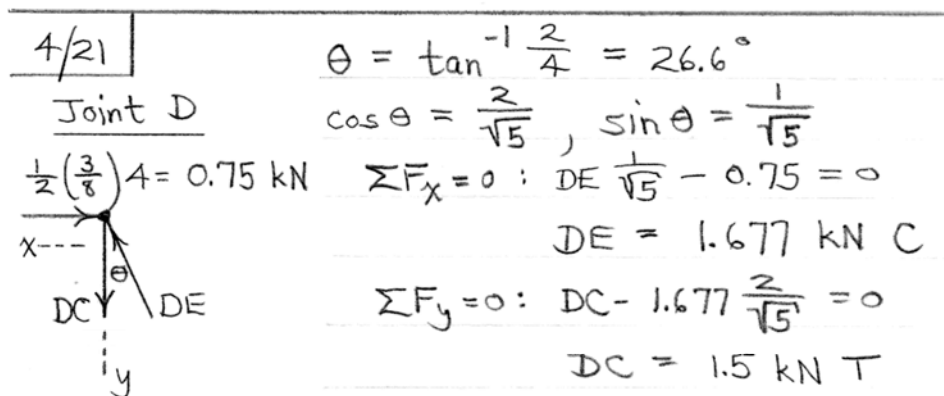 4/21
θ = tan⁻¹ 2/4 = 26.6°
Joint D
cos θ = 2/√5 , sin θ = 1/√5
1/2 (3/8) 4 = 0.75 kN
ΣFx = 0 : DE 1/√5 - 0.75 = 0
x
DE = 1.677 kN C
θ
DC
DE
ΣFy = 0 : DC - 1.677 2/√5 = 0
y
DC = 1.5 kN T